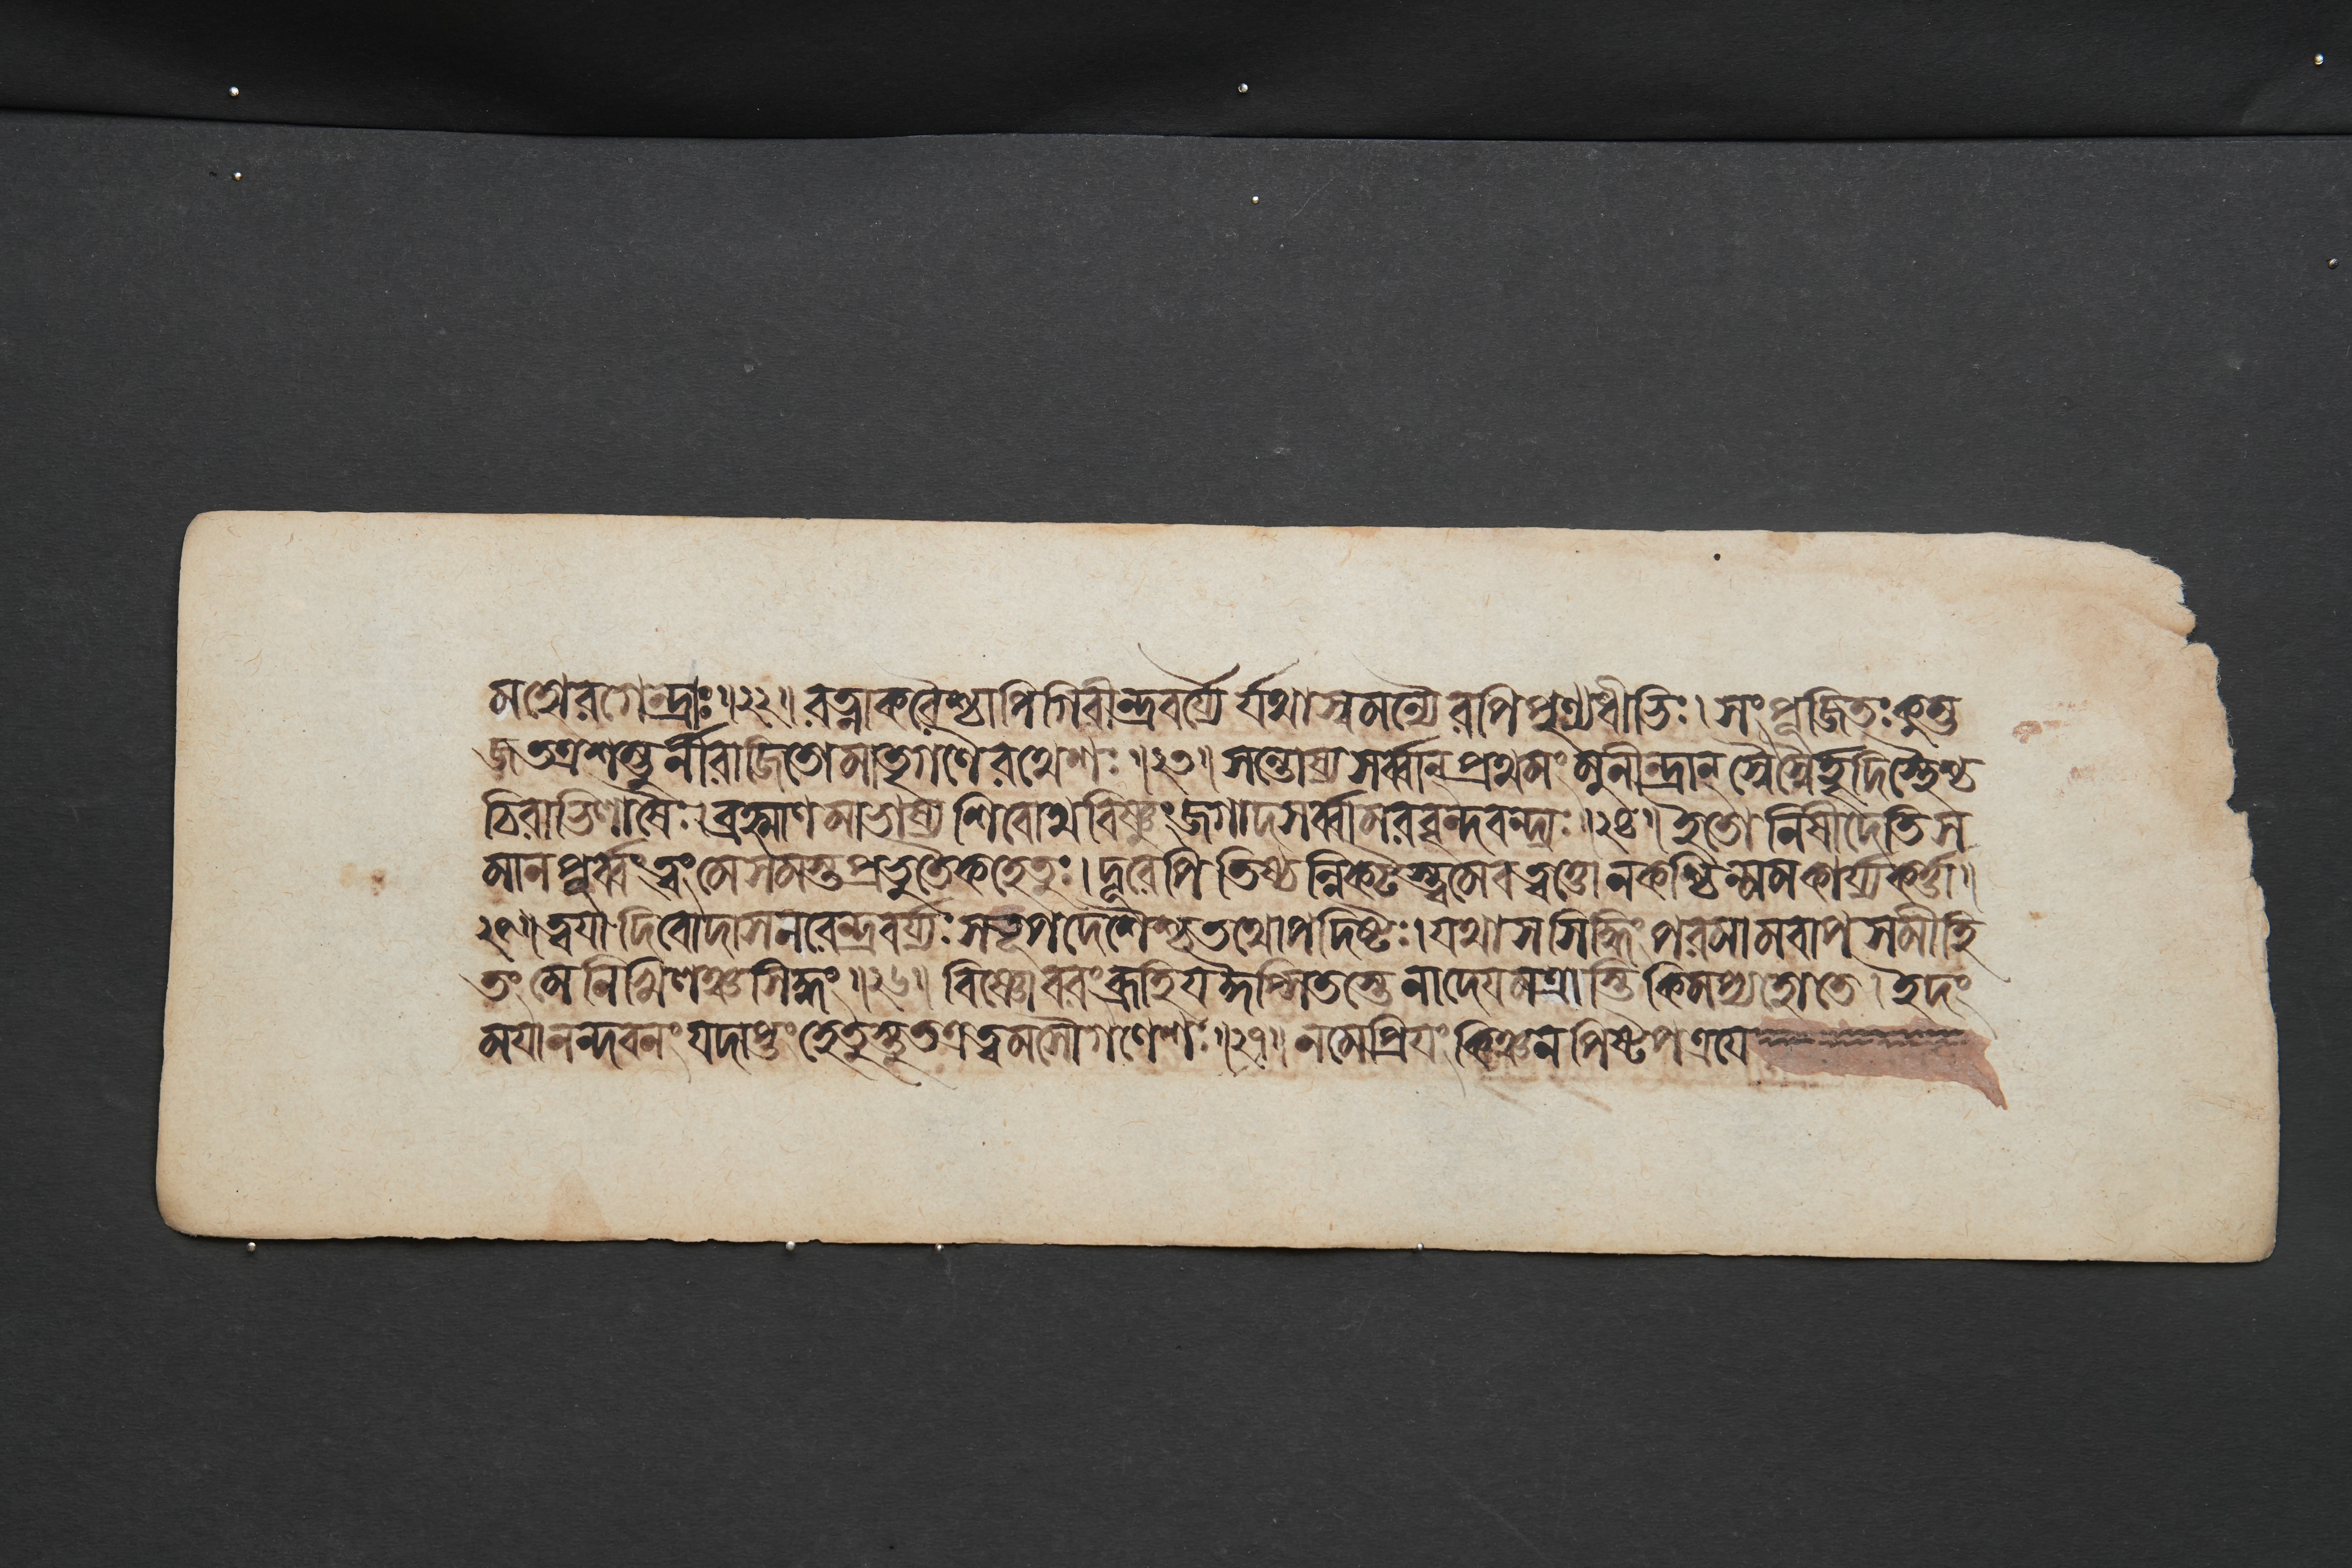 মহোরগেন্দ্রাঃ॥২২॥ রত্নাকরৈশ্চাপি গিরীন্দ্রবর্য্যৈর্যথাস্বমন্যৈরপি পুণ্যধীভিঃ। সংপূজিতঃ কুম্ভ
জ তত্র শম্ভুর্নীরাজিতো মাতৃগণৈরথেশঃ॥২৩॥ সন্তোষ্য সর্ব্বান্ প্রথমং মুনীন্দ্রান্ স্বৈস্বৈর্হৃদিস্থৈশ্চ
চিরাভিলাষৈঃ। ব্রহ্মাণমাভাষ্য শিবোথ বিষ্ণুং জগাদ সর্ব্বামরবৃন্দবন্দ্যঃ॥২৪॥ ইতো নিষীদেতি স
মানপূর্ব্বং ত্বং মে সমস্তপ্রভুতৈকহেতুঃ। দূরেপি তিষ্ঠন্নিকটস্ত্বমেব ত্বত্তো ন কশ্চিন্মম কার্য্যকর্ত্তা॥
২৫॥ ত্বযা দিবোদাসনরেন্দ্রবর্য্যঃ সদুপদেশৈশ্চ তথোপদিষ্টঃ। যথা স সিদ্ধিং পরমামবাপ সমীহি
তং মে নিখিলঞ্চ সিদ্ধং॥২৬॥ বিষ্ণো বরং ব্রূহি য ঈপ্সিতস্তে নাদেযমত্রাস্তি কিমপ্যহো তে। ইদং
মযানন্দবনং যদাপ্তং হেতুস্তু তত্র ত্বমসৌ গণেশঃ॥২৭॥ ন মে প্রিযং কিঞ্চন বিষ্টপত্রযে